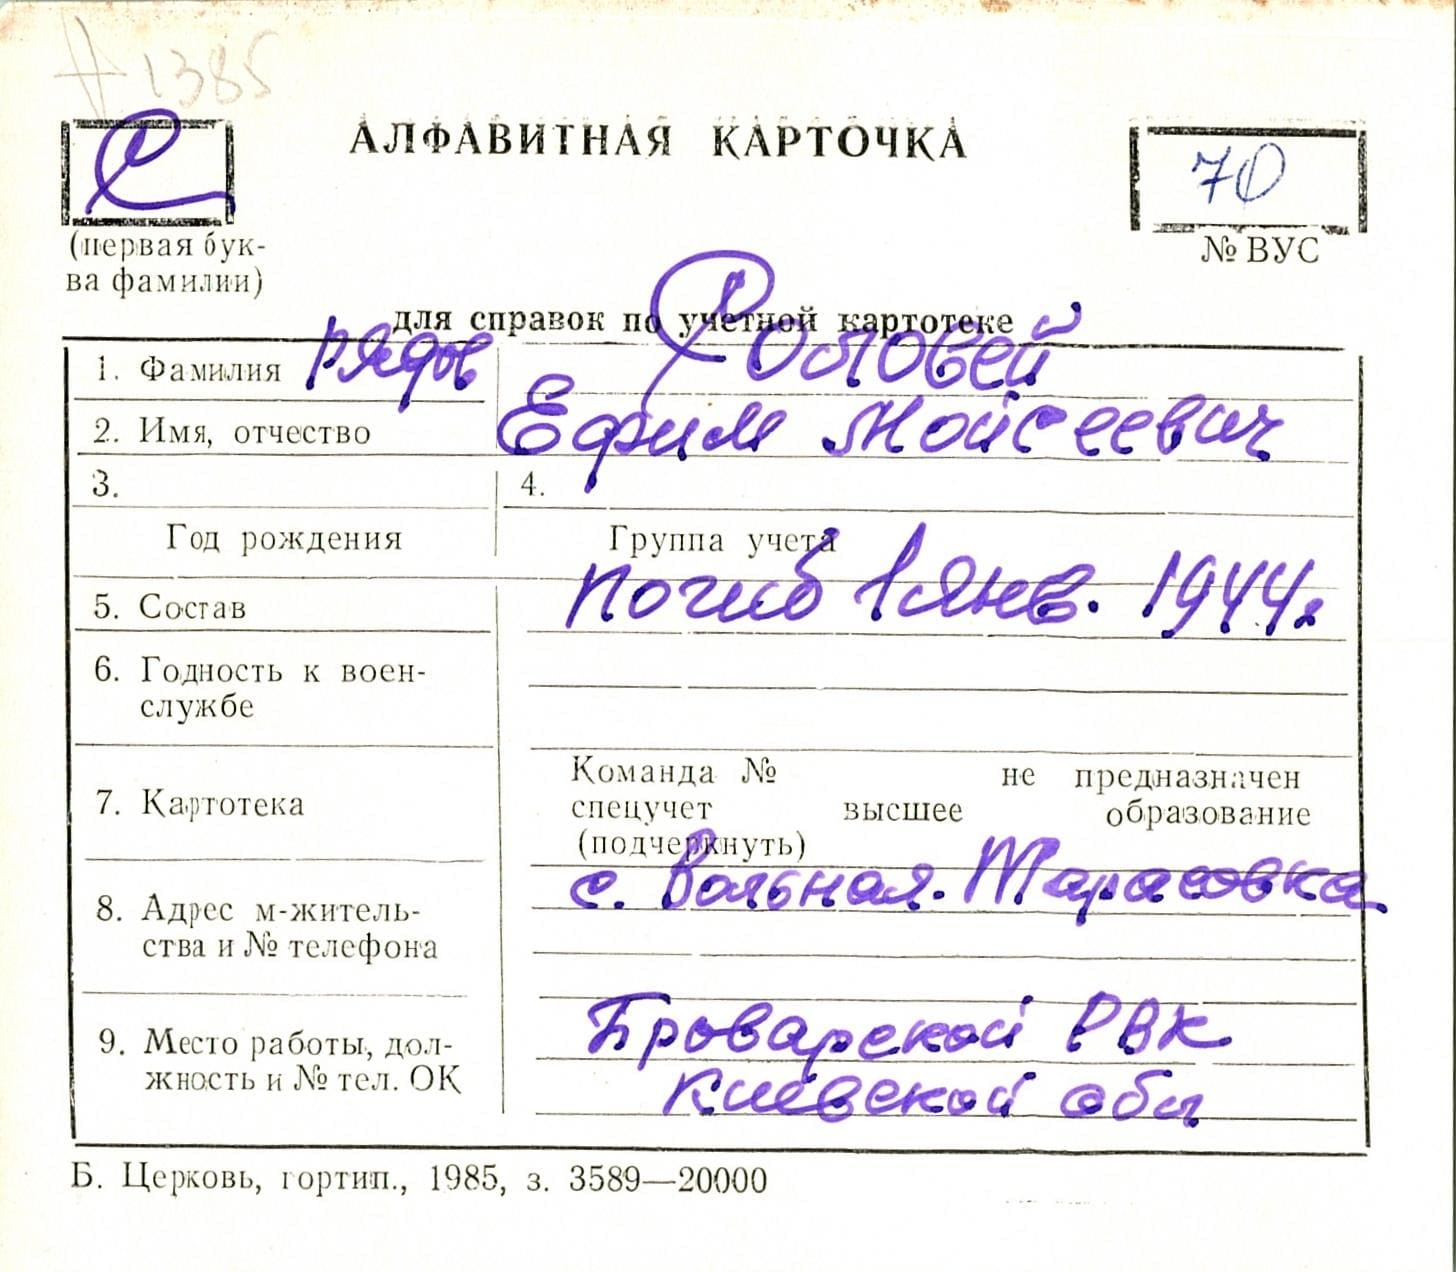 1385
АЛФАВИТНАЯ КАРТОЧКА
70
(первая бук-
ва фамилии)
№ ВУС
для справок по учетной картотеке
1. Фамилия рядов
2. Имя, отчество Ефим Мойсеевич
3. 4.
Год рождения Группа учета
5. Состав погиб 1 янв. 1944г
6. Годность к воен-
службе
7. Картотека
Команда № не предназначен
спецучет высшее образование
(подчеркнуть)
8. Адрес м-житель-
ства и № телефона
с. Вольная. Тарасовка
9. Место работы, дол-
жность и № тел. ОК
Броварской РВК
Киевской обл
Б. Церковь, гортип., 1985, з. 3589—20000